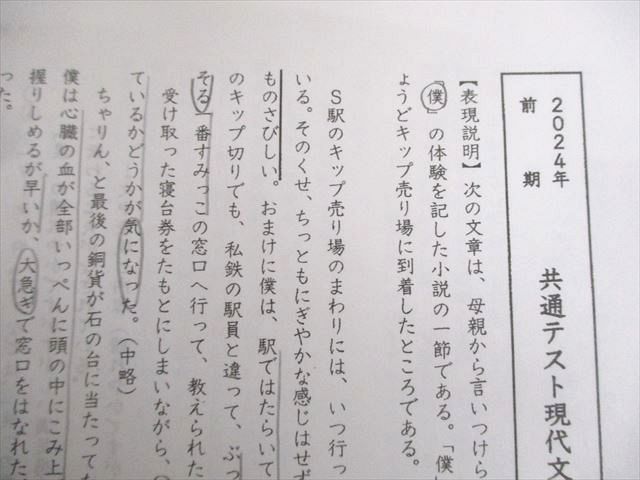 2024年
前期
共通テスト現代文
【表現説明】次の文章は、母親から言いつけら
「僕」の体験を記した小説の一節である。「僕」
ょうどキップ売り場に到着したところである。
S駅のキップ売り場のまわりには、いつ行っ
いる。そのくせ、ちっともにぎやかな感じはせず
ものさびしい。おまけに僕は、駅ではたらいて
のキップ切りでも、私鉄の駅員と違って、ぶっ
そる一番すみっこの窓口へ行って、教えられた
受け取った寝台券をたもとにしまいながら、
ているかどうかが気になった。（中略）
ちゃりん、と最後の銅貨が石の台に当たってた
僕は心臓の血が全部いっぺんに頭の中にこみ上
握りしめるが早いか、大急ぎで窓口をはなれた
った。